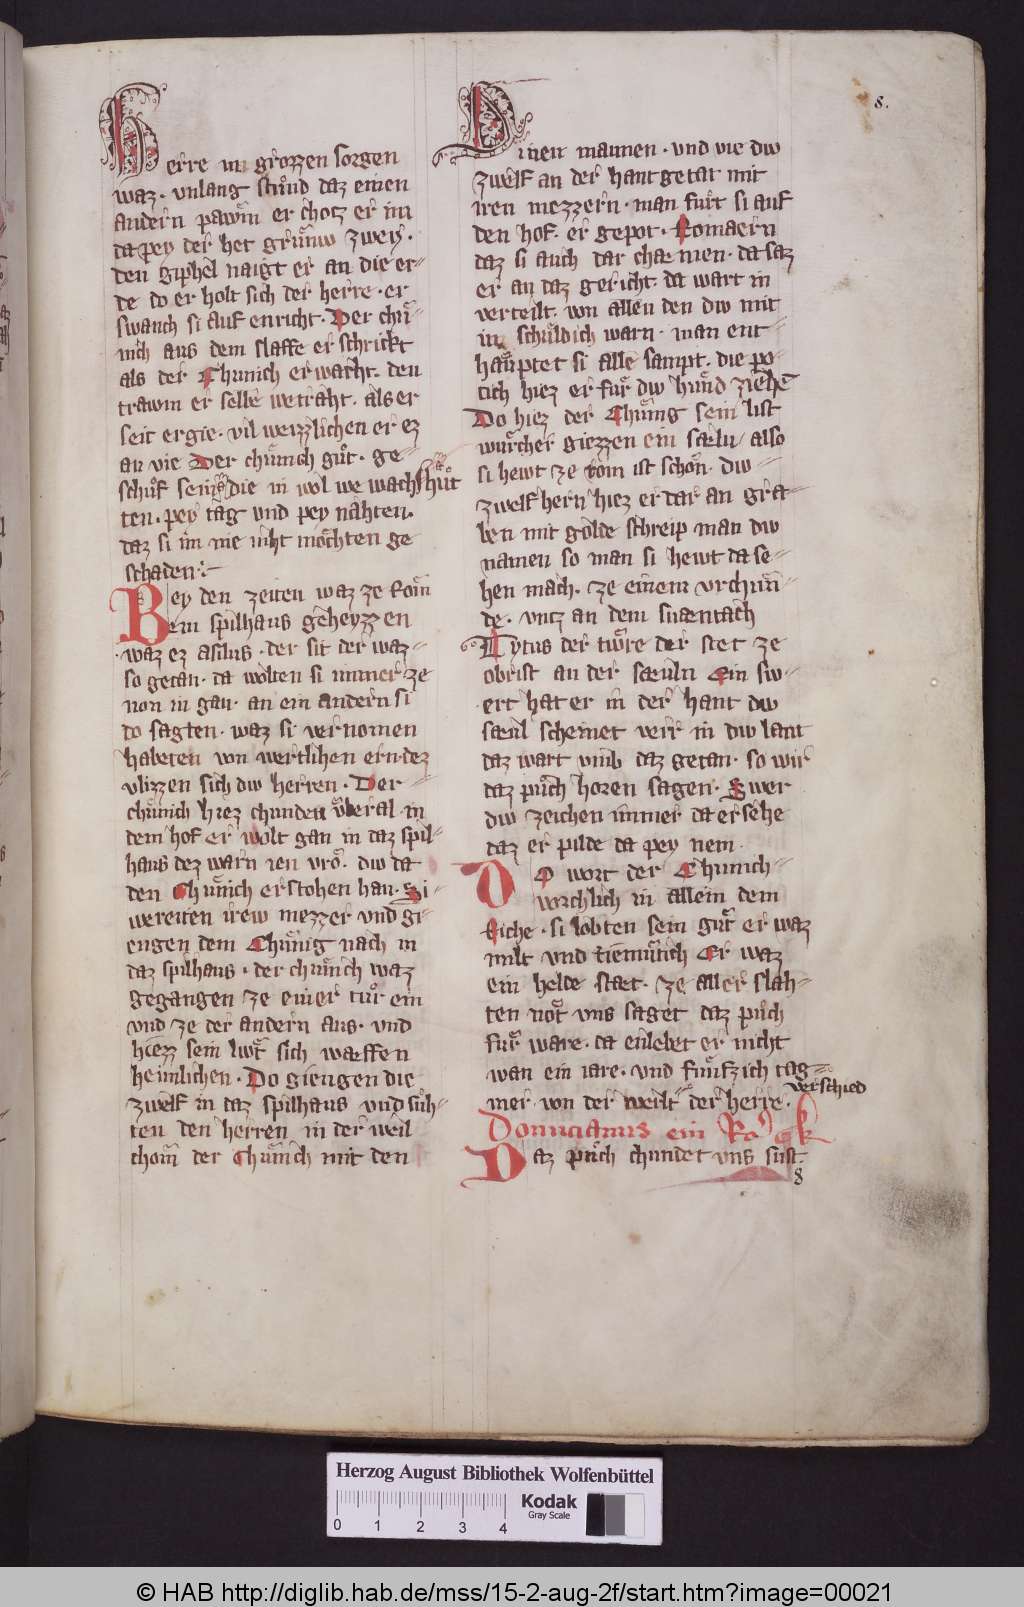 8.
Herre in grozzen sorgen
waz · vnlang stůnd daz einen
andern pawm er chotz er im
da pey der het grůnw zwey ·
den giphel naigt er an die er-
de do er holt sich der herre · er
swanch si auf enricht · Der chů-
nich aus dem slaffe er schrickt
als der Chunich erwacht · den
trawm er selbe wetraht · als er
seit ergie · vil weizzlichen er ez
an vie Der chůnich gůt · ge-
schůf sein die in wol we wach hůt
ten · pey tag vnd pey nahten ·
daz si im nie niht mochten ge
schaden
Bey den zeiten waz ze Rom
ein spilhaus geheyzzen
waz ez asilus · der sit der waz-
so getan · da wolten si immer ze
non in gan · an ein andern si
do sagten · waz si vernomen
habeten von wertlihen ern · dez
vlizzen sich diw herren · Der-
chůnich hiez chunden vberal in
dem hof er wolt gan in daz spil-
haus dez warn ien vro · diw da
den Chůnich erstohen han · Si-
wereiten irew mezzer vnd gi-
engen dem Chůnig nach in
daz spilhaus · der chunich waz
gegangen ze einer tůr ein
vnd ze der andern aus · vnd
hiezz sein liwt sich waffen
heimlichen · Do giengen die
zwelf in daz spilhaus vnd sůh-
ten den herren in der weil
chom der Chůnich mit den
Sinen mannen · vnd vie diw
zwelf an der hantgetat mit
iren mezzern · man furt si auf
den hof · er gepot · Romaern
daz si auch dar chæmen · da saz
er an daz gericht · da wart in
verteilt · von allen den diw mit
in schuldich warn · man ent-
hauptet si alle sampt · die po-
tich hiez er fůr diw hund ziehen
Do hiez der Chůnig sein list
wůrcher giezzen ein sæln · also
si hewt ze Rom ist schon · diw-
zwelf hern hiez er dar an gra-
ben mit golde schreip man diw
namen so man si hewt da se-
hen mach · ze einem vrchun-
de · vntz an dem suntach
Tytus der twre der stet ze
obrist an der sæuln Ein sw-
ert hat er in der hant diw
sæul scheinet verr in diw lant
daz wart vmb daz getan · so wir
daz půch horen sagen · Swer
diw zeichen immer da ersehe
daz er pilde da pey nem ·
Do wort der Chunich-
vorchlich in allein dem
Riche · si lobten sein gůt er waz
milt vnd tiemůtich Er waz
ein helde stæt · ze aller slah-
ten not vns saget daz půch
fůr ware · da enlebet er nicht
wan ein iare · vnd funfzich tag-
mer von der werlt der herre · verschied
Domicianus ein Ro° ck
Daz půch chundet vns sust ·
8
Herzog August Bibliothek Wolfenbüttel
0 1 2 3 4
Kodak
Gray Scale
© HAB http://diglib.hab.de/mss/15-2-aug-2f/start.htm?image=00021